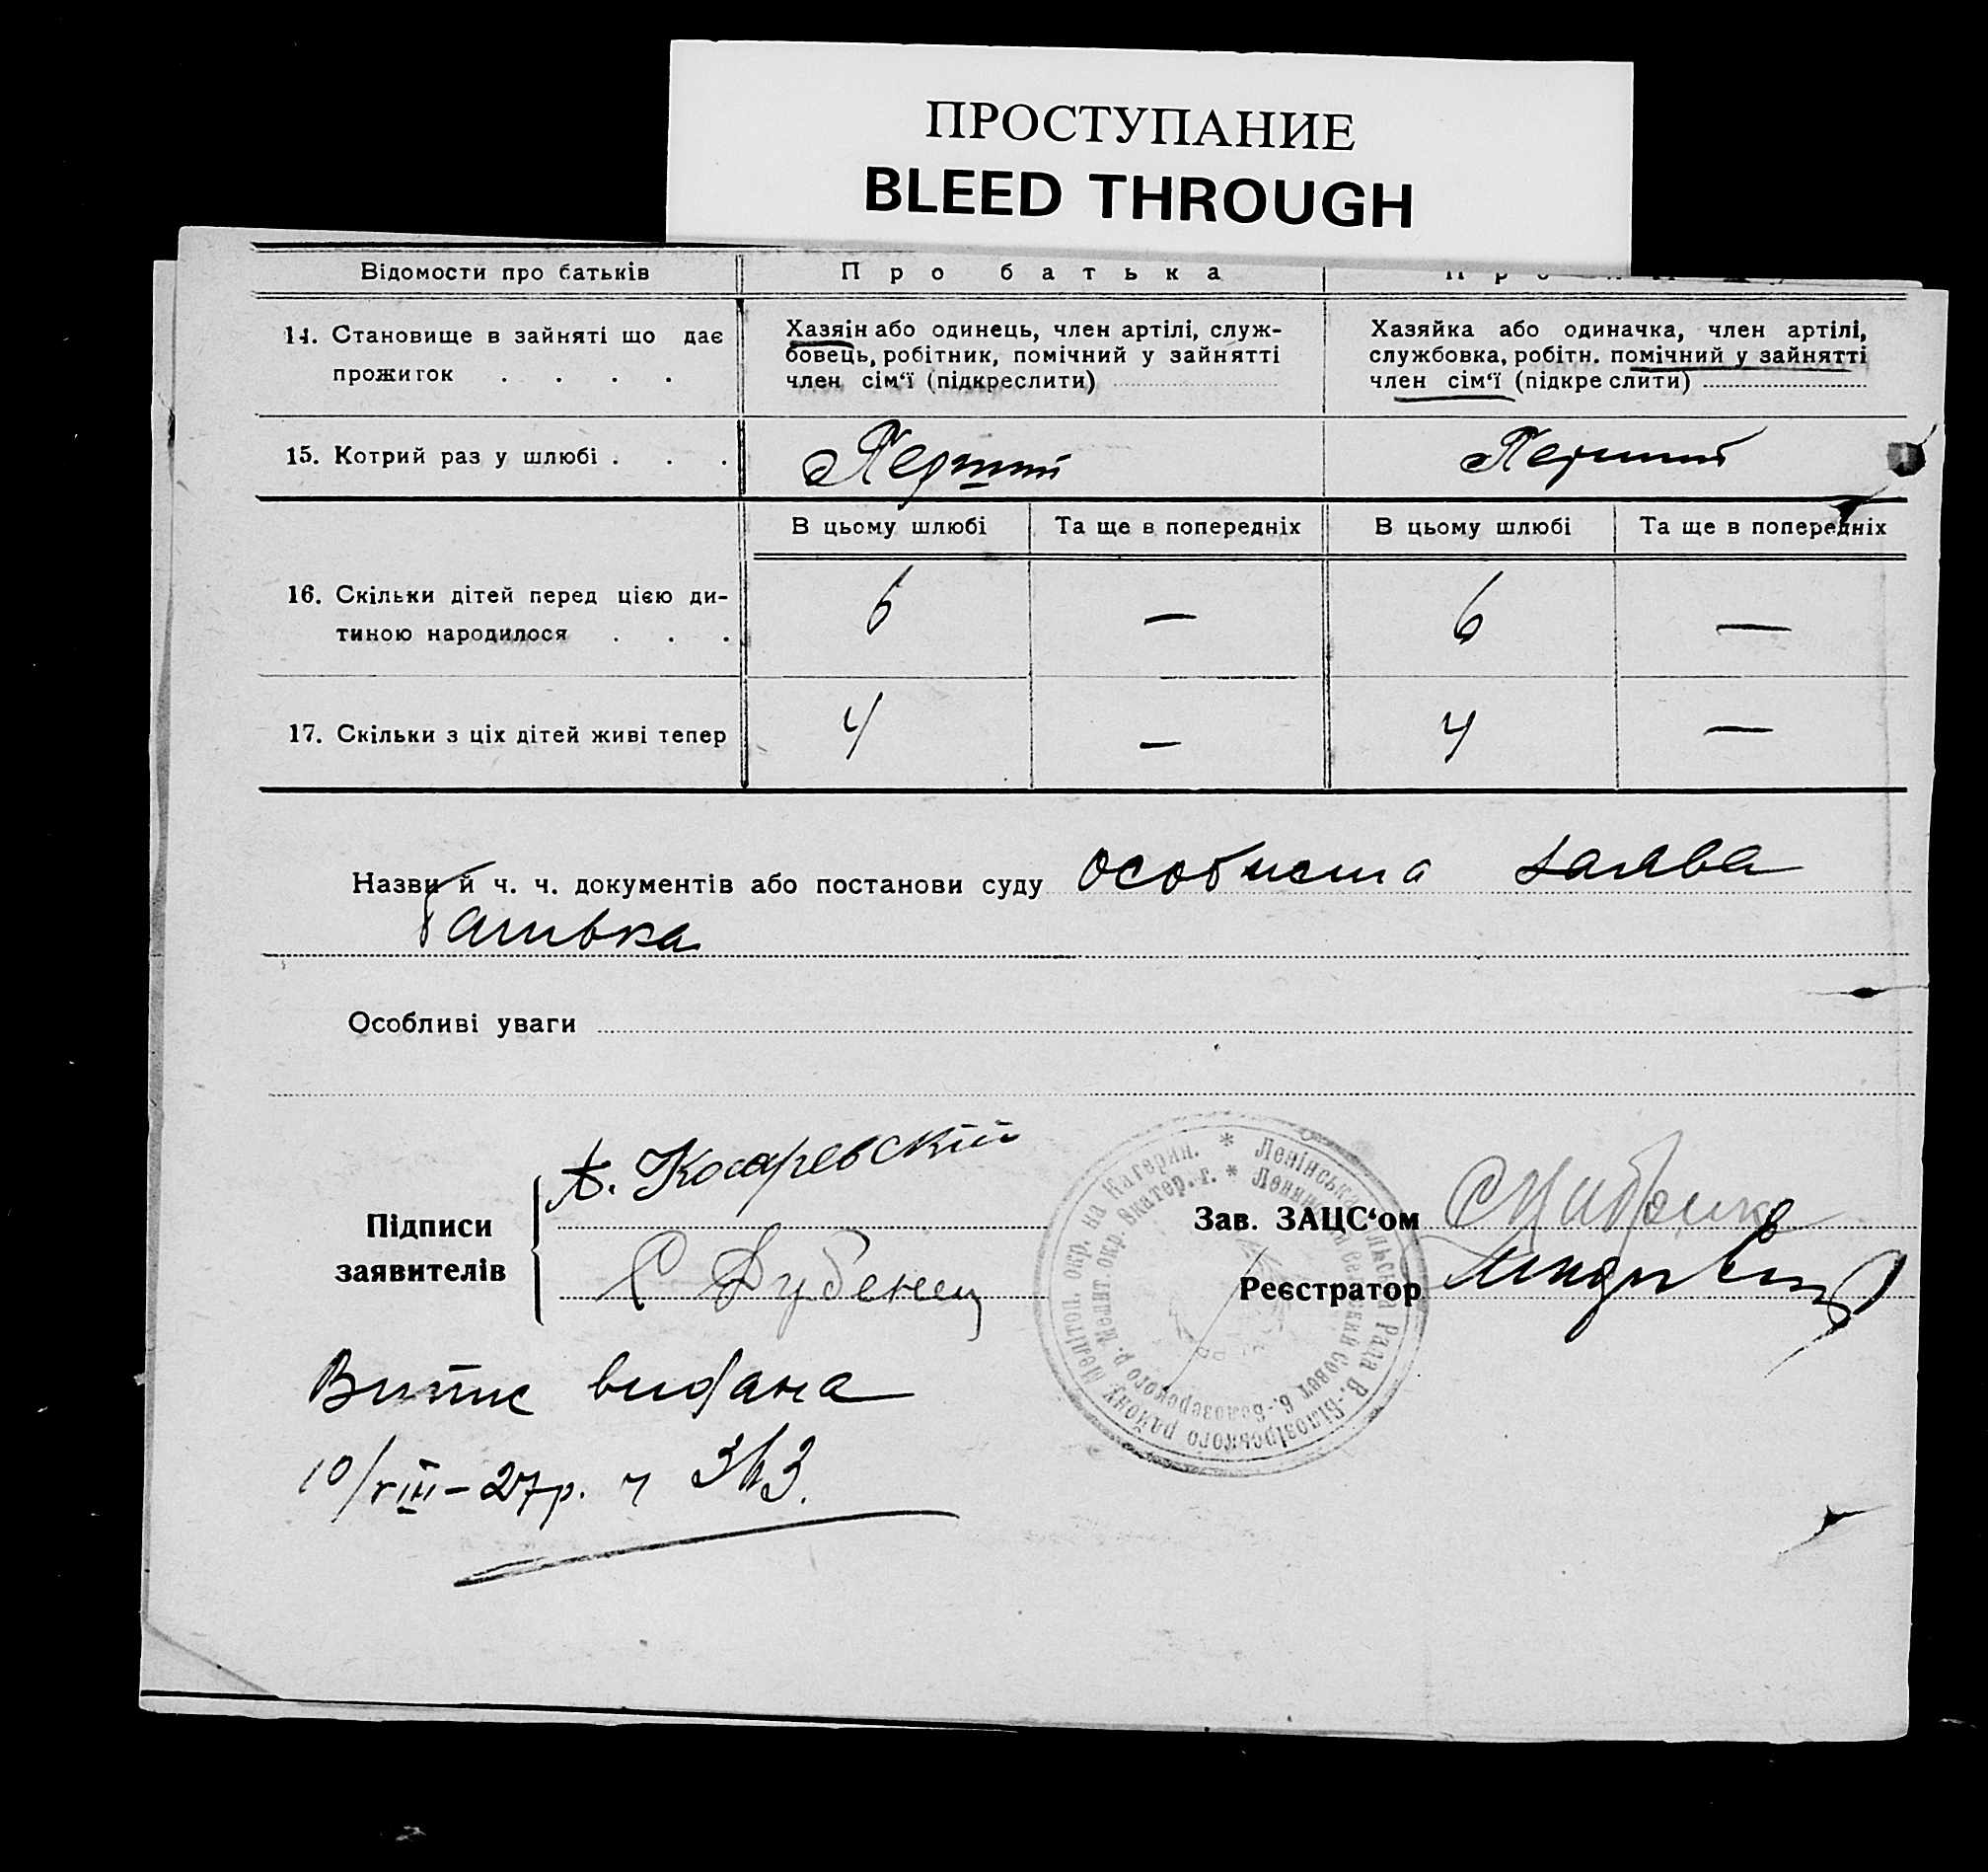 ПРОСТУПАНИЕ
BLEED THROUGH
Відомости про батьків
Про батька
14. Становище в зайняті що дає
прожиток . . . .
Хазяін або одинець, член артілі, служ-
бовець, робітник, помічний у зайнятті
член сім‘ї (підкреслити)
Хазяйка або одиначка, член артілі,
службовка, робітн. помічний у зайнятті
член сім‘ї (підкреслити)
15. Котрий раз у шлюбі . . .
Перший
Перший
В цьому шлюбі
Та ще в попередніх
В цьому шлюбі
Та ще в попередніх
16. Скільки дітей перед цією ди-
тиною народилося . . .
6
—
6
—
17. Скільки з ціх дітей живі тепер
4
—
4
—
Назви й ч. ч. документів або постанови суду особиста заява
батька
Особливі уваги
Підписи
заявителів
А. Косаревский
С Дубенец
Зав. ЗАЦС‘ом
Реєстратор
* Ленінська сільська Рада В.-Білозірського району Мелітоп. окр. на Катерин.
Випис видана
10/VIII–27р. ч 313.